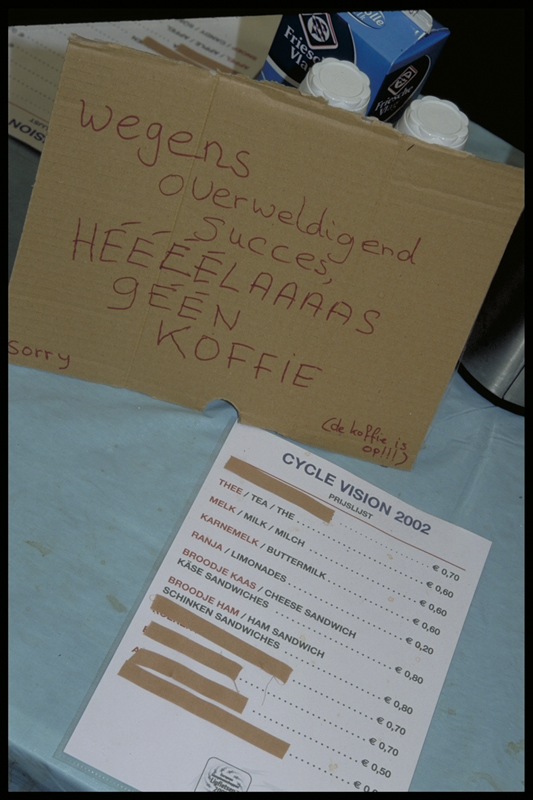 wegens
overweldigend
succes,
HÉÉÉÉLAAAAS
GÉÉN
KOFFIE
sorry
(de koffie is
op!!!)
CYCLE VISION 2002
PRIJSLIJST
€ 0,70
THEE / TEA / THE € 0,60
MELK / MILK / MILCH € 0,60
KARNEMELK / BUTTERMILK € 0,60
RANJA / LIMONADES € 0,20
BROODJE KAAS / CHEESE SANDWICH
KÄSE SANDWICHES € 0,80
BROODJE HAM / HAM SANDWICH
SCHINKEN SANDWICHES € 0,80
€ 0,70
€ 0,70
€ 0,50